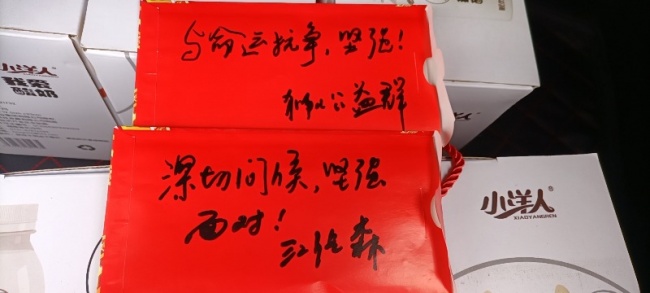 小洋人
我家
酸奶
与命运抗争，坚强！
公益群
深切问候，坚强
面对！
小洋人
XIAOYANGREN